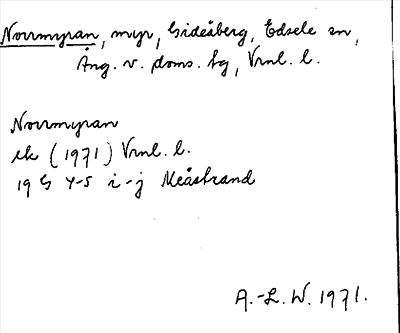 Norrmyran, myr, Gideåberg, Edsele sn,
Ång. v. doms. tg, Vrnl. l.
Norrmyran
ek (1971) Vrnl. l.
19 G Y-S i-j Meåstrand
A.-L. W. 1971.